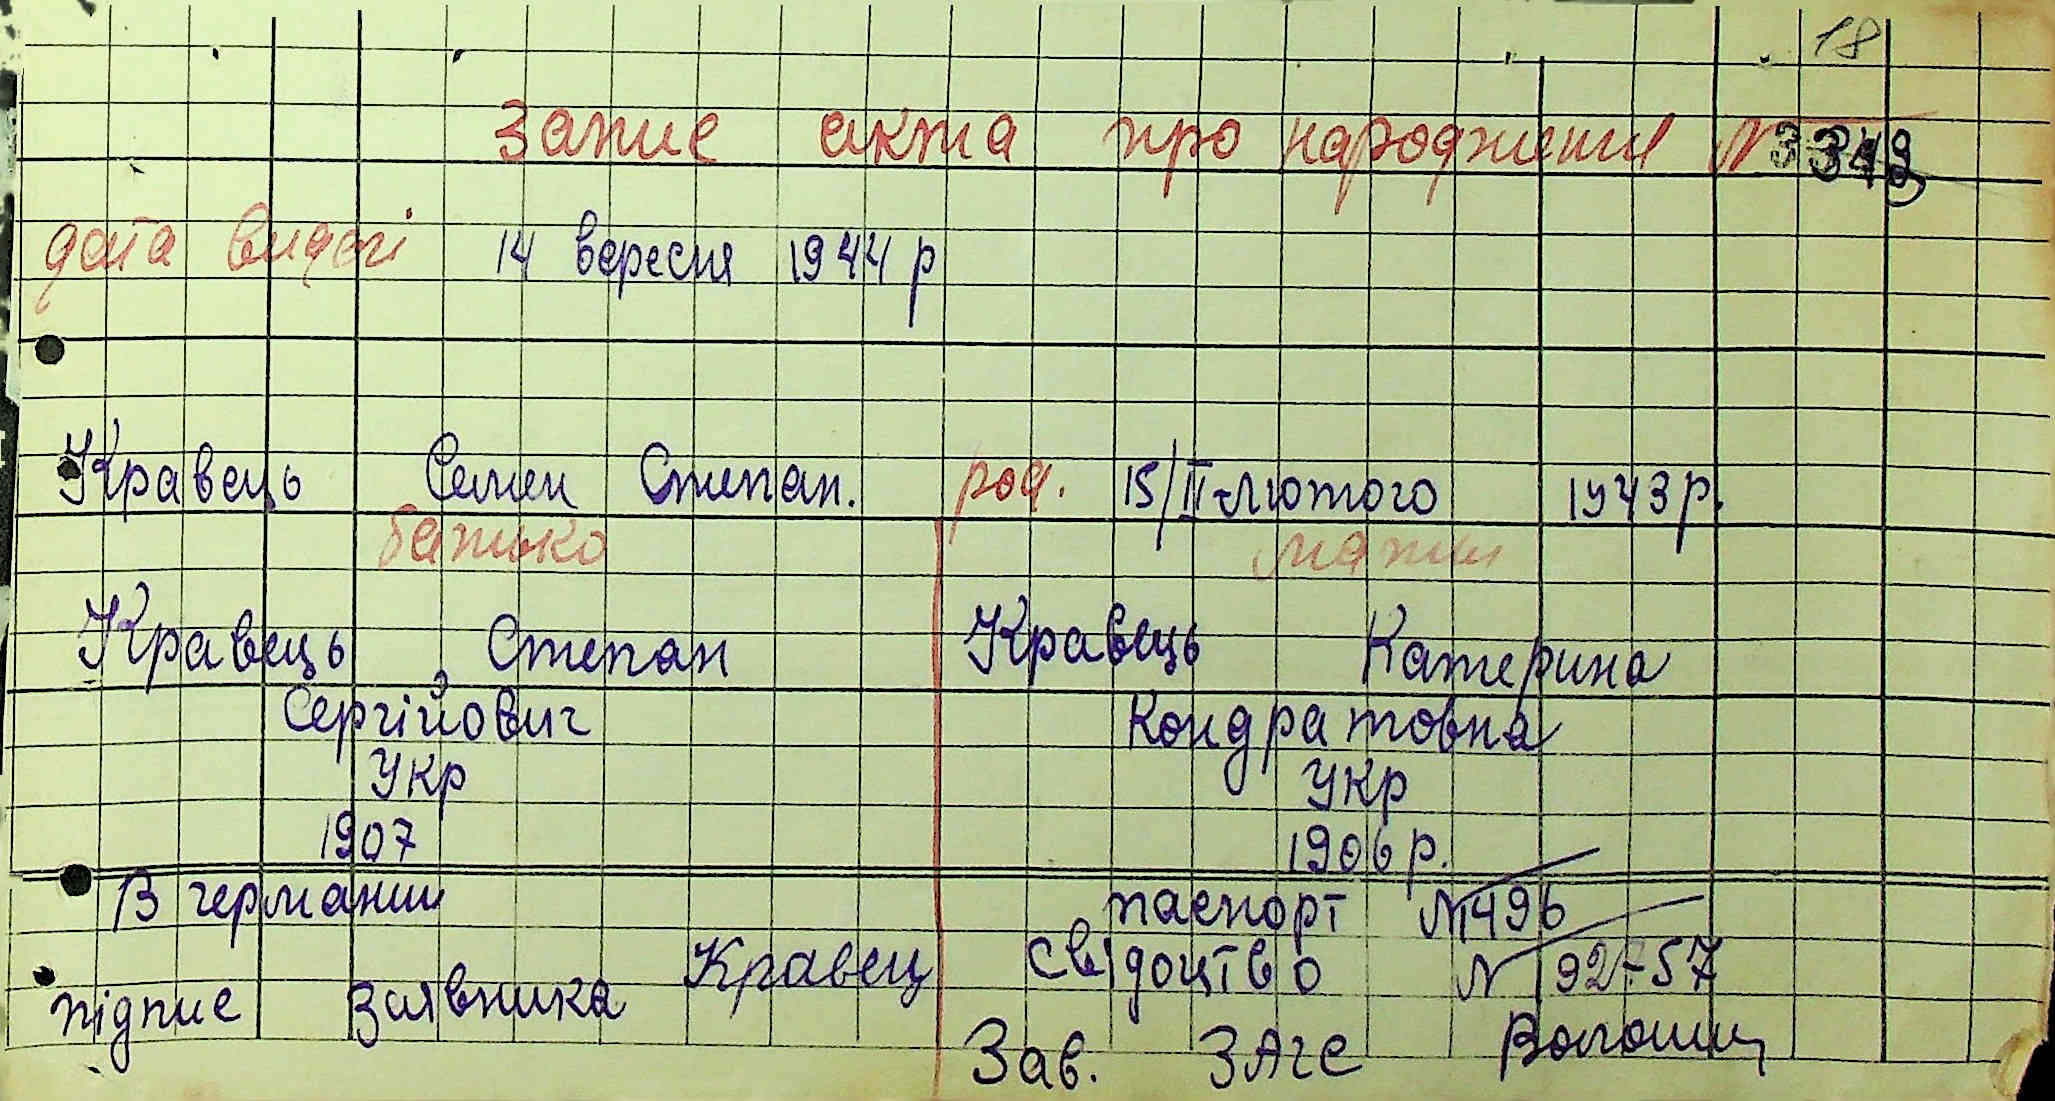 18
Запис акта про народження N 3349
дата видачі 14 вересня 1944 р
Кравець Семен Степан. род. 15/II-лютого 1943 р.
батько мати
Кравець Степан Кравець Катерина
Сергійович Кондратовна
Укр Укр
1907 1906 р.
В германии паспорт N 1496
підпис заявника Кравец свідоцтво N 92-57
Зав. ЗАГС Волошин